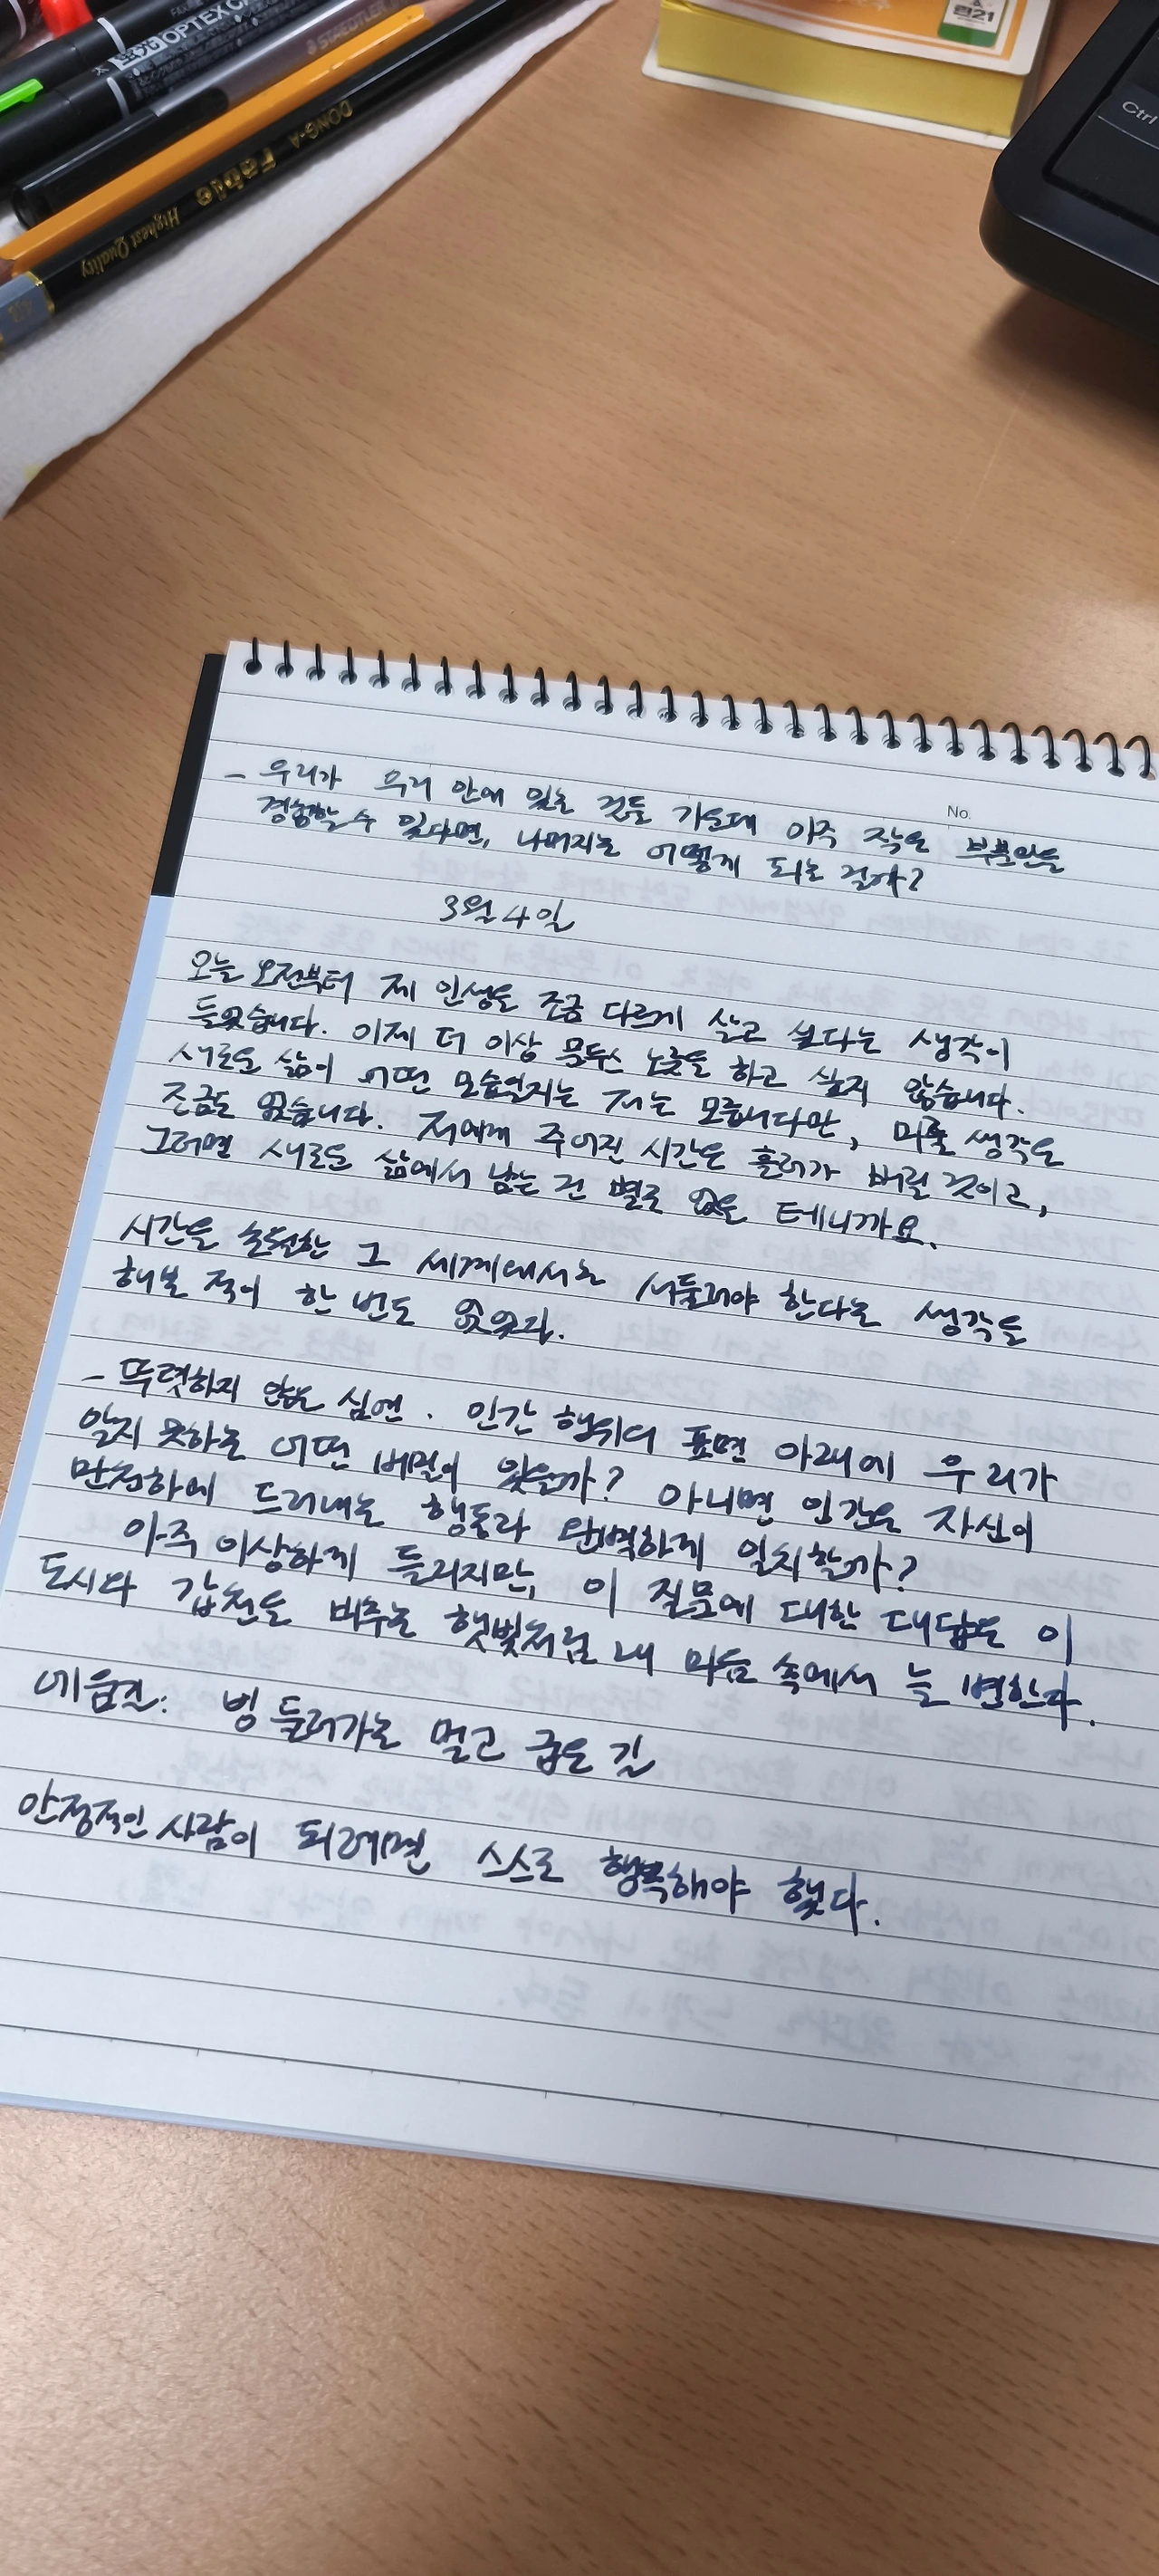 OPTEX C
STAEDTLER
DONG-A Fable Highest Quality
Ctrl
No.
- 우리가 우리 안에 있는 것들 가운데 아주 작은 부분만을
경험할 수 있다면, 나머지는 어떻게 되는 걸까?
3월 4일
오늘 오전부터 제 인생을 조금 다르게 살고 싶다는 생각이
들었습니다. 이제 더 이상 문두스 노릇을 하고 싶지 않습니다.
새로운 삶이 어떤 모습일지는 저는 모릅니다만, 미룰 생각은
조금도 없습니다. 저에게 주어진 시간은 흘러가 버릴 것이고,
그러면 새로운 삶에서 남는 건 별로 없을 테니까요.
시간을 초월한 그 세계에서는 서둘러야 한다는 생각을
해본 적이 한 번도 없었다.
- 뚜렷하지 않은 심연. 인간 행위의 표면 아래에 우리가
알지 못하는 어떤 비밀이 있을까? 아니면 인간은 자신이
만천하에 드러내는 행동과 완벽하게 일치할까?
아주 이상하게 들리지만, 이 질문에 대한 대답은 이
도시와 갑천을 비추는 햇빛처럼 내 마음 속에서 늘 변한다.
에움길: 빙 둘러가는 멀고 굽은 길
안정적인 사람이 되려면 스스로 행복해야 했다.